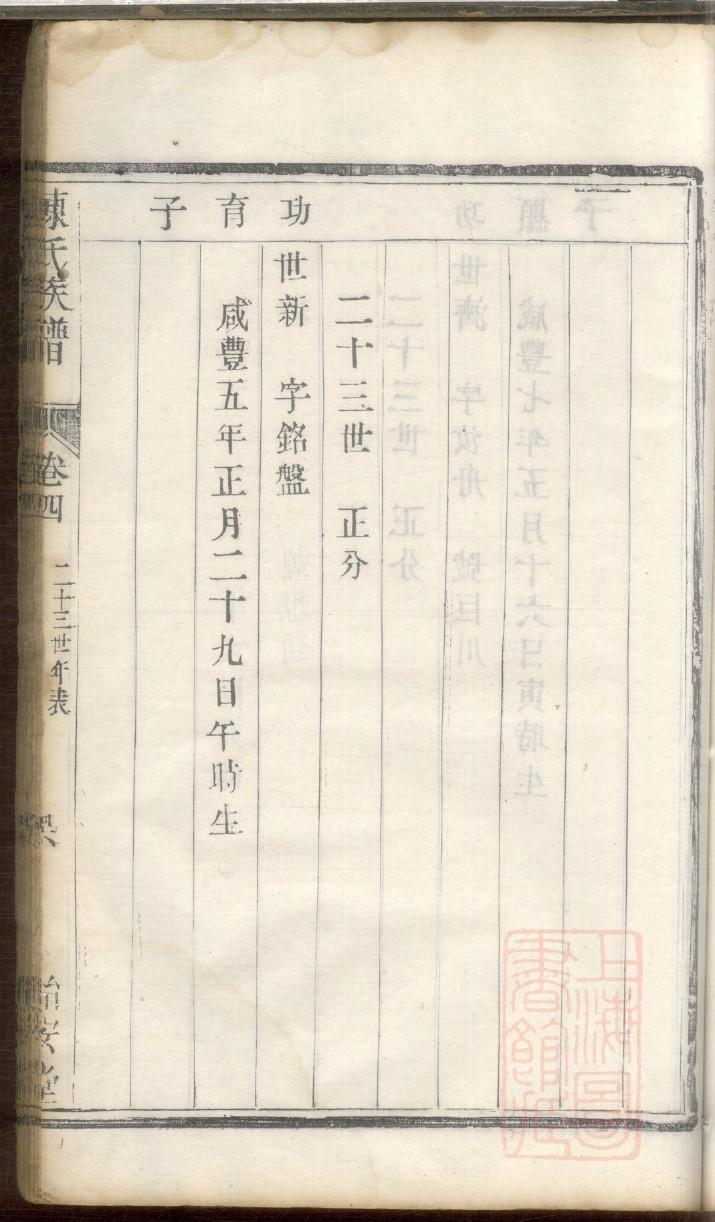 二十三世 正分
功 世新 字銘盤
育 咸豐五年正月二十九日午時生
子
陳氏族譜 卷四 二十三世年表
上海圖書館藏